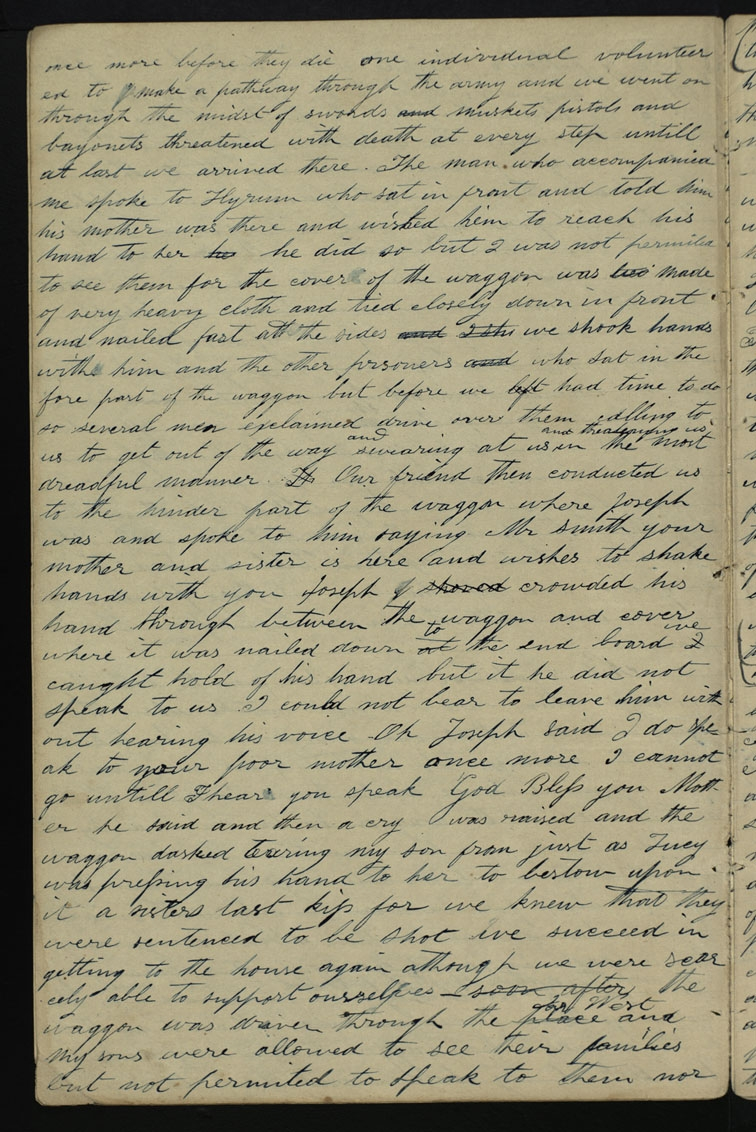 once more before they die one individual volunteer
ed to make a pathway through the army and we went on
through the midst of swords and muskets pistols and
bayonets threatened with death at every step untill
at last we arrived there. The man who accompanied
me spoke to Hyrum who sat in front and told him
his mother was there and wished him to reach his
hand to her he did so but I was not permitted
to see them for the cover of the waggon was made
of very heavy cloth and tied closely down in front
and nailed fast at the sides and we shook hands
with him and the other prisoners and who sat in the
fore part of the waggon but before we left had time to do
so several men exclaimed drive over them calling to
us to get out of the way and swearing at us and threatening us in the most
dreadful manner. Our friend then conducted us
to the hinder part of the waggon where Joseph
was and spoke to him saying Mr Smith your
mother and sister is here and wishes to shake
hands with you Joseph shoved crowded his
hand through between the waggon and cover
where it was nailed down at to the end board I we
caught hold of his hand but it he did not
speak to us I could not bear to leave him with
out hearing his voice Oh Joseph said I do spe-
ak to your poor mother once more I cannot
go untill I hear you speak God Bless you Moth-
er he said and then a cry was raised and the
waggon dashed tearing my son from just as Lucy
was pressing his hand to her to bestow upon
it a sisters last kiss for we knew that they
were sentenced to be shot we succeed in
getting to the house again although we were scar
cely able to support ourselves soon after the
waggon was driven through the place Far West and
my sons were allowed to see their families
but not permited to speak to them nor